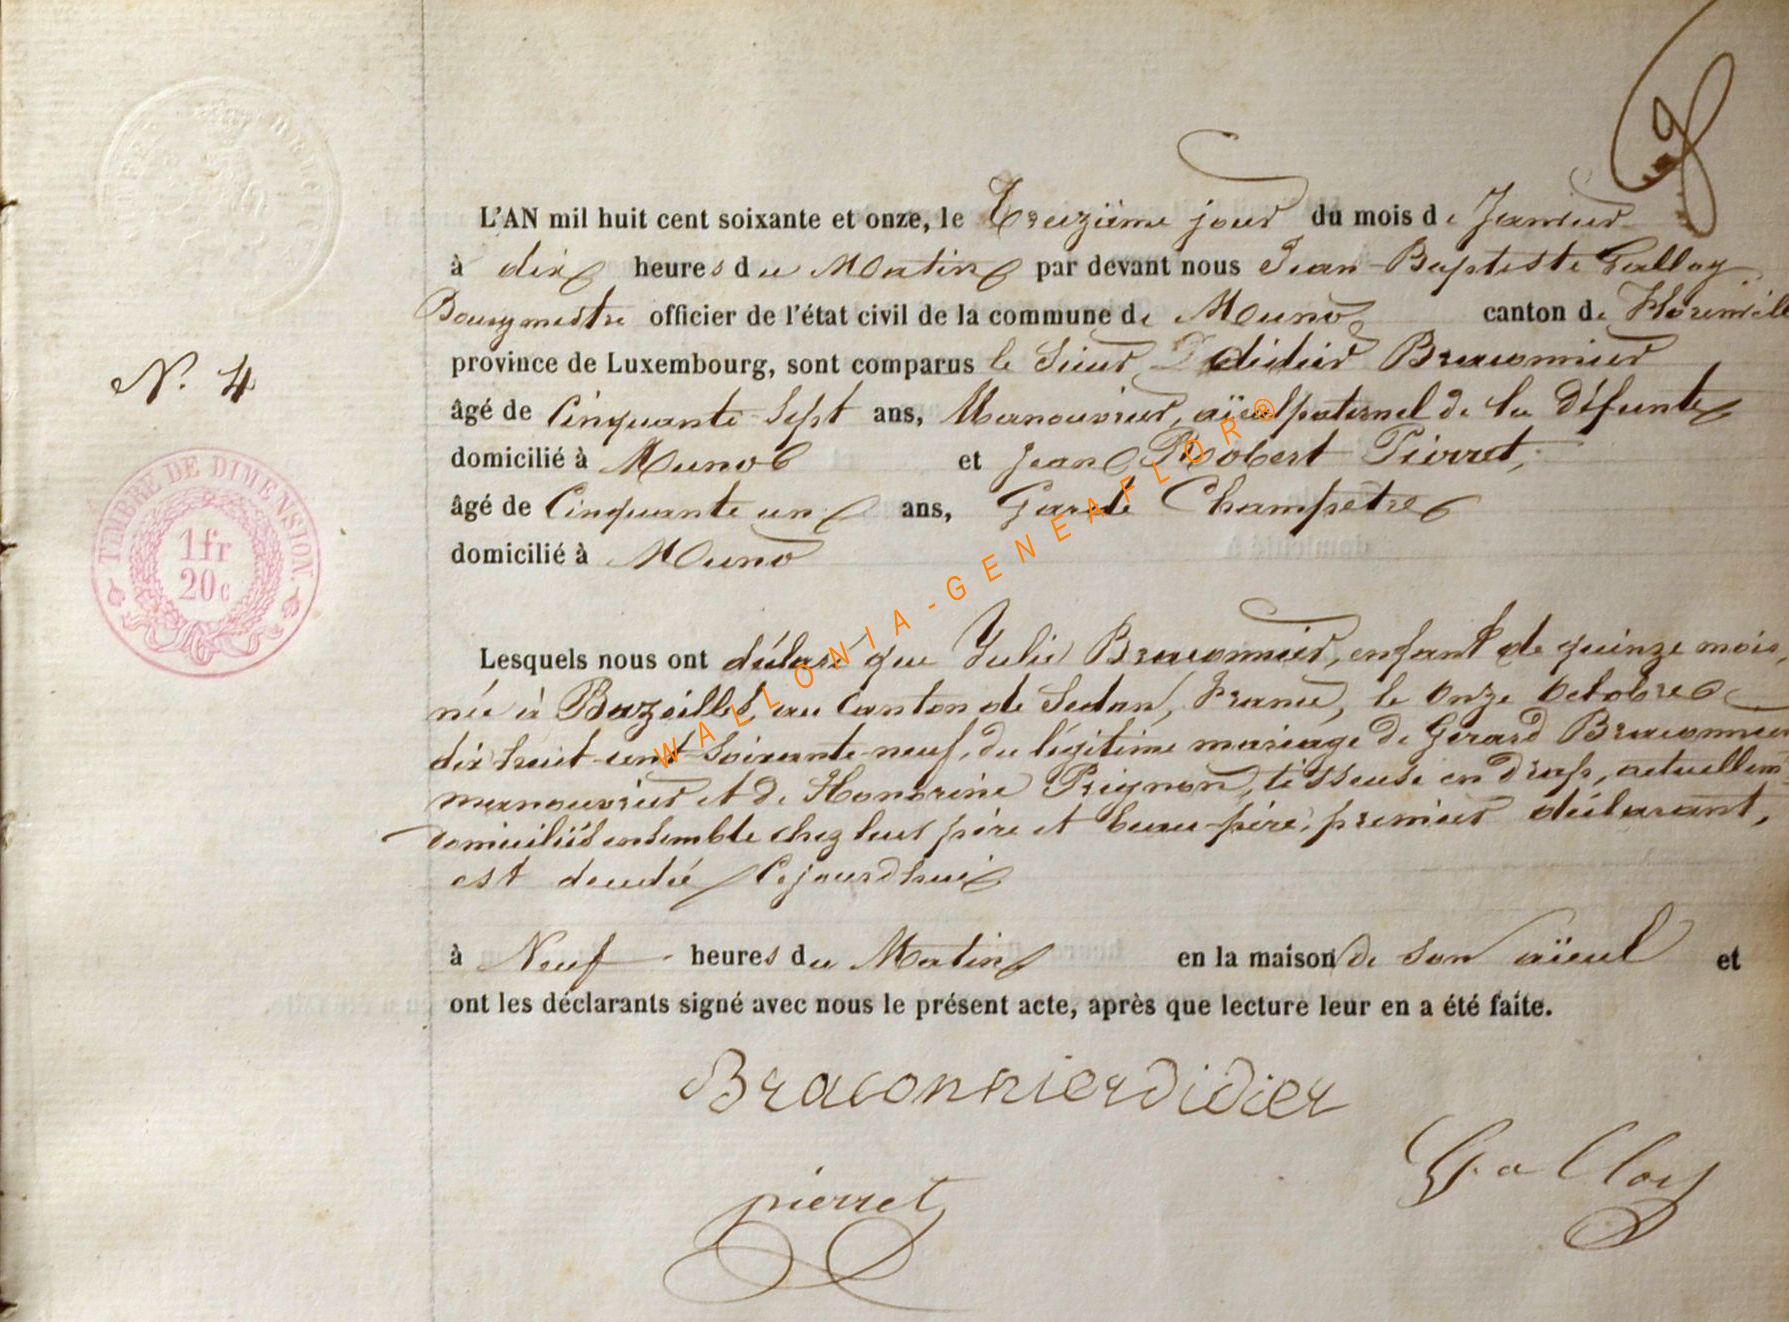 L'AN mil huit cent soixante et onze, le Treizième jour du mois de Janvier
à dix heures du Matin par devant nous Jean Baptiste Galloy
Bourgmestre officier de l'état civil de la commune de Muno canton de Florenville
province de Luxembourg, sont comparus le Sieur Didier Braconnier
âgé de Cinquante-Sept ans, Manouvrier, aïeul paternel de la défunte
domicilié à Muno et Jean Robert Pierret,
âgé de Cinquante un ans, Garde Champetre
domicilié à Muno
N. 4
TIMBRE DE DIMENSION.
1fr
20c
Lesquels nous ont déclaré que Julie Braconnier, enfant de quinze mois,
née à Bazeilles, au Canton de Sedan, France, le Onze Octobre
dix huit cent Soixante-neuf, du légitime mariage de Gérard Braconnier
manouvrier et de Honorine Prignon, tisseuse en drap, actuellem
domiciliés ensemble chez leur père et beau-père, premier déclarant,
est décédée Cejourd'hui
à Neuf heures du Matin en la maison de son aïeul et
ont les déclarants signé avec nous le présent acte, après que lecture leur en a été faite.
Braconnier didier
Galloy
pierret
WALLONIA-GENEAFLOR®